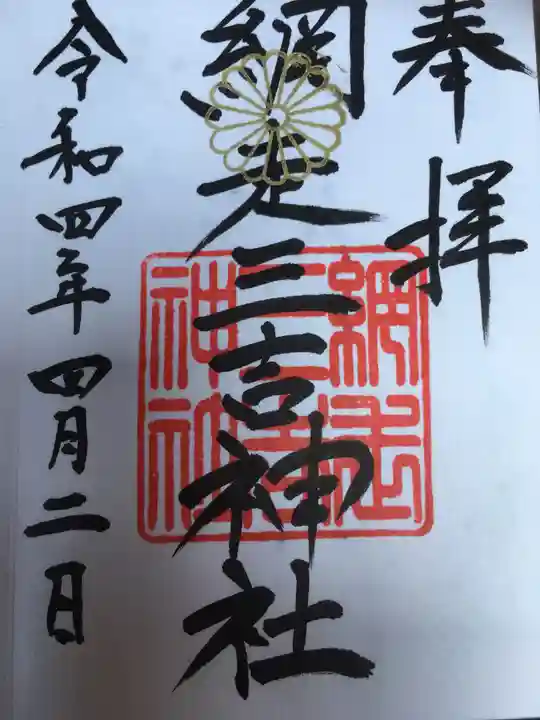 奉拝
網走三吉神社
網走三吉神社
令和四年四月二日